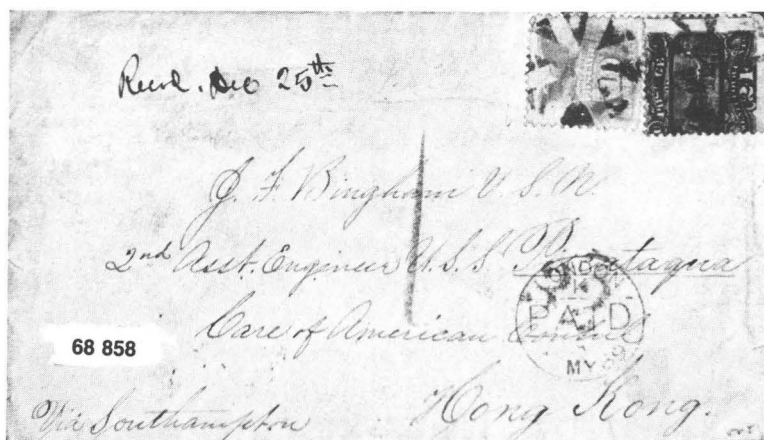 Recd. Dec 25th
J. F. Bingham U.S.N.
2nd Asst. Engineer U.S.S. Piscataqua
Care of American Consul
Hong Kong.
Via Southampton
LONDON
PAID
MY 69
68 858